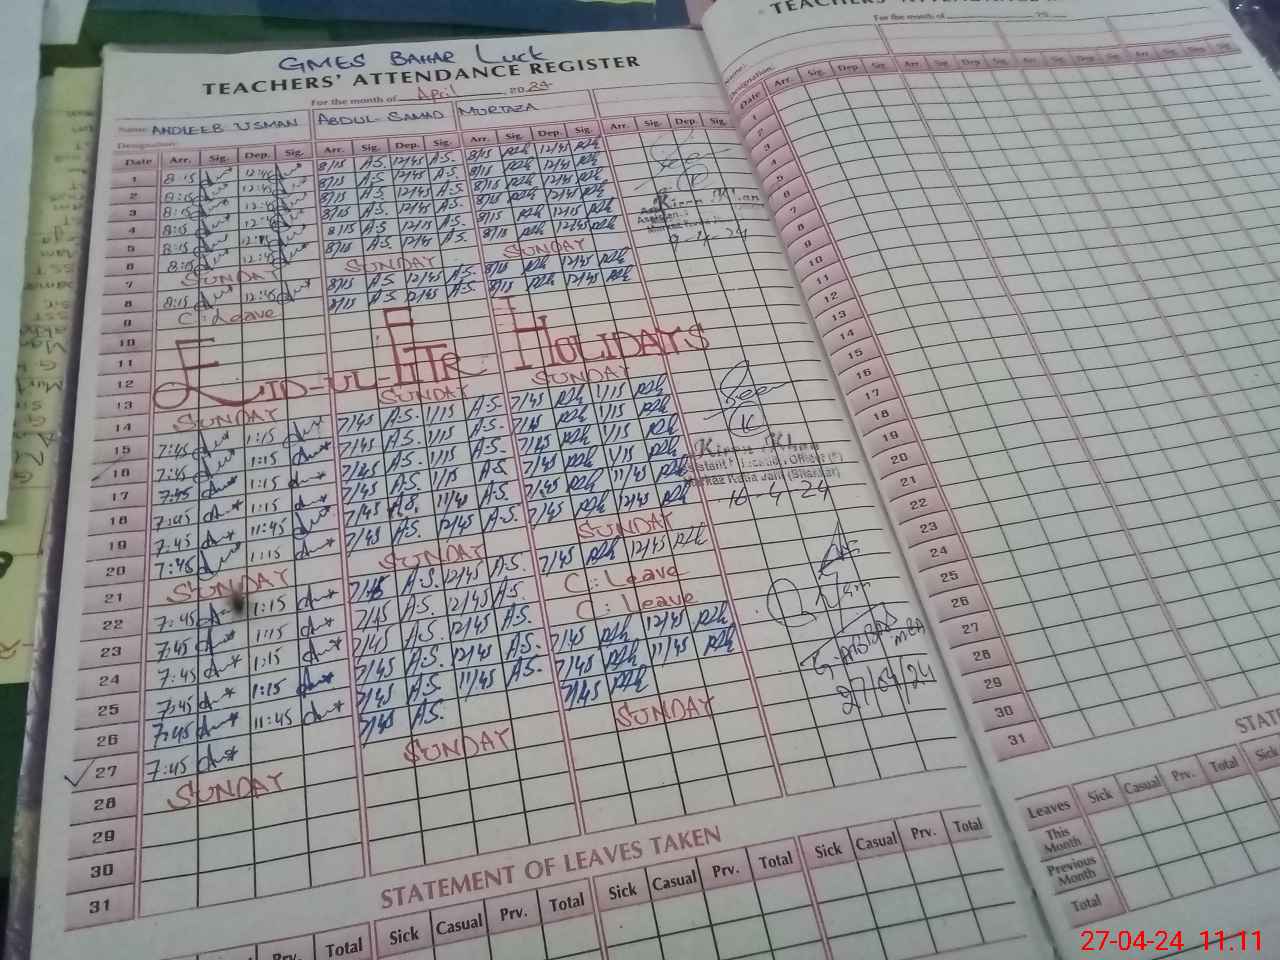 GMES BAHAR Luck
TEACHERS' ATTENDANCE REGISTER
For the month of April 2024
Name ANDLEEB USMAN ABDUL SAMAD MURTAZA
Designation:
Date Arr. Sig. Dep. Sig. Arr. Sig. Dep. Sig. Arr. Sig. Dep. Sig. Arr. Sig. Dep. Sig.
1 8:15 12:45 8/15 A.S. 12/45 A.S. 8/15 12/45
2 8:15 12:45 8/15 A.S. 12/45 A.S. 8/15 12/45
3 8:15 12:45 8/15 A.S. 12/45 A.S. 8/15 12/45
4 8:15 12:45 8/15 A.S. 12/15 A.S. 8/15 12/45
5 8:15 8/15 A.S. 12/45 A.S. 8/15 12/15
6 8:15 12:45 8/15 A.S. 12/45 A.S. 8/15 12/45
7 SUNDAY SUNDAY SUNDAY
8 8:15 12:45 8/15 A.S. 12/45 A.S. 8/15 12/45
9 C: Leave 8/15 A.S. 12/45 A.S. 8/15 12/45
10
11
12
EID-UL-FITR HOLIDAYS
13
14 SUNDAY SUNDAY SUNDAY
15 7:45 1:15 7/45 A.S. 1/15 A.S. 7/45 1/15
16 7:45 1:15 7/45 A.S. 1/15 A.S. 7/45 1/15
17 7:45 1:15 7/45 A.S. 1/15 A.S. 7/45 1/15
18 7:45 1:15 7/45 A.S. 1/15 A.S. 7/45 1/15
19 7:45 11:45 7/45 A.S. 11/45 A.S. 7/45 11/45
20 7:45 1:15 7/45 A.S. 12/45 A.S. 7/45 12/45
21 SUNDAY SUNDAY SUNDAY
22 7:45 1:15 7/45 A.S. 12/45 A.S. 7/45 12/45
23 7:45 1:15 7/45 A.S. 12/45 A.S. C: Leave
24 7:45 1:15 7/45 A.S. 12/45 A.S. C: Leave
25 7:45 1:15 7/45 A.S. 12/45 A.S. 7/45 12/45
26 7:45 11:45 7/45 A.S. 11/45 A.S. 7/45 11/45
27 7:45 7/45 A.S. 7/45
28 SUNDAY SUNDAY SUNDAY
29
30
31
See
Kiran Khan
See
Kiran Khan
16-4-24
27/04/24
STATEMENT OF LEAVES TAKEN
Total Sick Casual Prv. Total Sick Casual Prv. Total Sick Casual Prv. Total
For the month of 20
Name:
Designation:
Date Arr. Sig. Dep. Sig. Arr. Sig. Dep. Sig. Arr. Sig. Dep. Sig.
1
2
3
4
5
6
7
8
9
10
11
12
13
14
15
16
17
18
19
20
21
22
23
24
25
26
27
28
29
30
31
Leaves Sick Casual Prv. Total Sick
This Month
Previous Month
Total
27-04-24 11.11